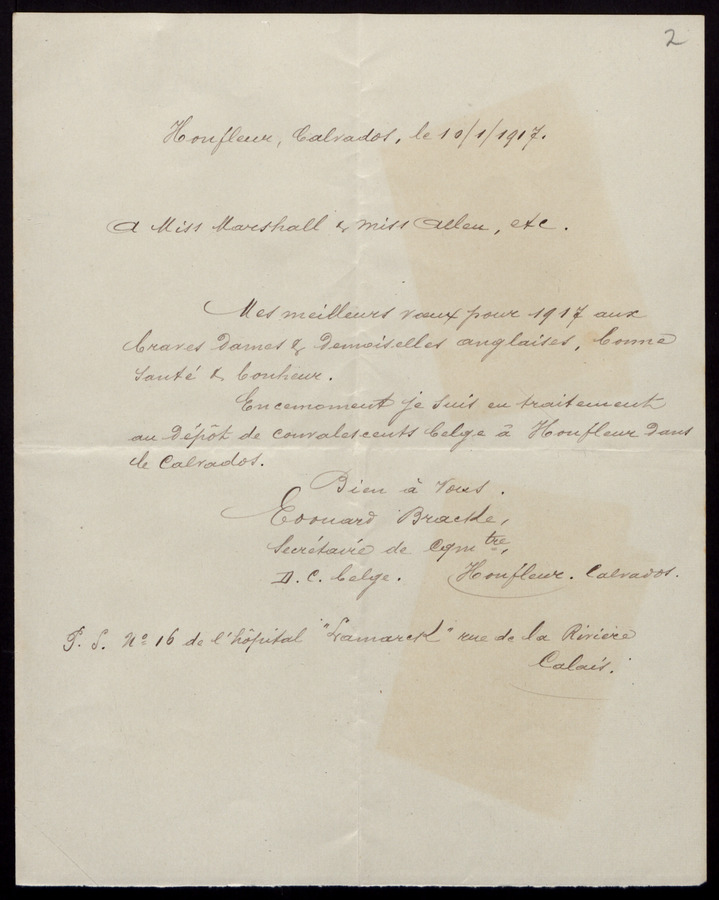 2
Honfleur, Calvados, le 10/1/1917.
A Miss Marshall & Miss Allen, etc.
Mes meilleurs vœux pour 1917 aux
braves Dames & Demoiselles anglaises, bonne
santé & bonheur.
En ce moment je suis en traitement
au dépôt de convalescents belge à Honfleur dans
le Calvados.
Bien à Vous.
Edouard Bracke,
Secrétaire de Cqm tre,
D. C. belge. Honfleur. Calvados.
P. S. No 16 de l'hôpital "Lamarck" rue de la Rivière
Calais.